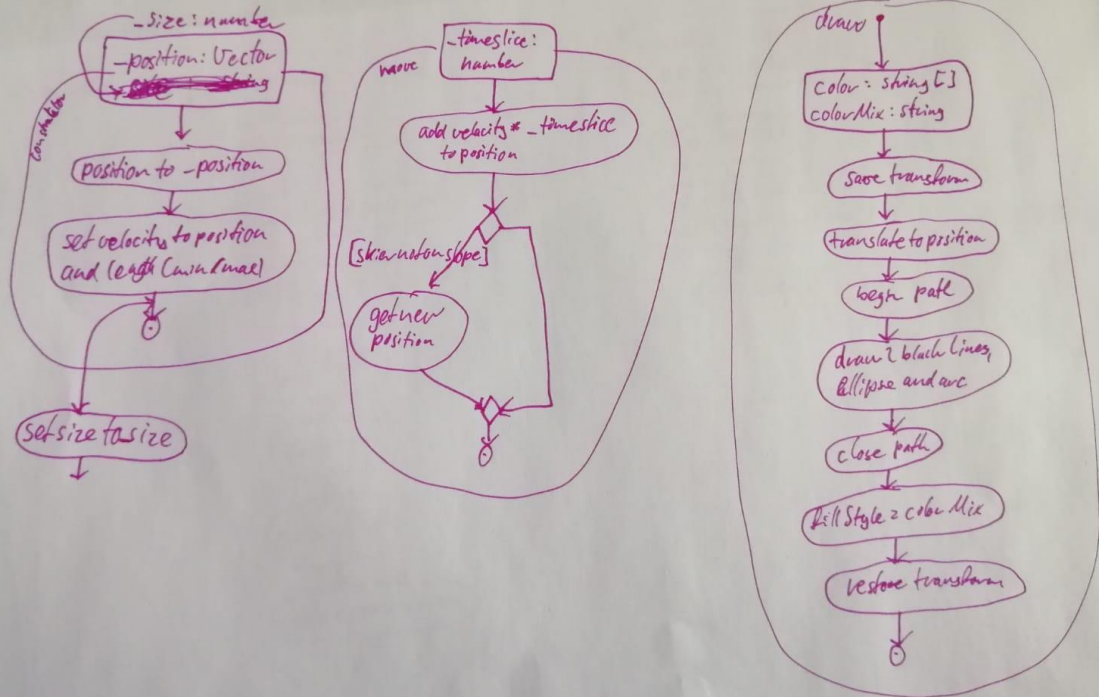 _size: number
_position: Vector
constructor
position to _position
set velocity to position
and length (min/max)
set size to _size
move
_timeslice:
number
add velocity * _timeslice
to position
[skier not on slope]
get new
position
draw
color: string[]
colorMix: string
save transform
translate to position
begin path
draw 2 black lines,
ellipse and arc
close path
fillStyle = colorMix
restore transform